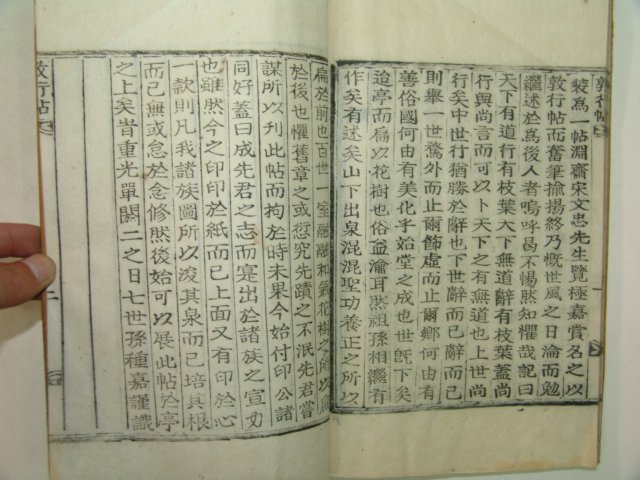 裝爲一帖淵齋宋文忠先生覽極嘉賞名之以
敦行帖而奮筆揄揚終乃慨世風之日淪而勉
繼述於爲後人者嗚呼曷不惕然知懼哉記曰
天下有道行有枝葉天下無道辭有枝葉蓋尚
行與尚言而可以卜天下之有無道也上世尚
行矣中世行猶勝於辭也下世辭而已辭而已
則舉一世騖外而止爾飾虛而止爾鄉何由有
善俗國何由有美化乎始堂之成也世旣下矣
迨亭而扁以花樹也俗益淪耳然祖孫相繼有
作矣有述矣山下出泉混混聖功養正之所以
扁於前也百世一室融融和氣花樹之所以扁
於後也懼舊章之或愆究先蹟之不泯先君嘗
謀所以刊此帖而拘於時未果今始付印公諸
同好蓋曰成先君之志而寔出於諸族之宣力
也雖然今之印印於紙而已上面又有印於心
一款則凡我諸族圖所以浚其泉而已培其根
而已無或怠於念修然後始可以展此帖於亭
之上矣旹重光單閼二之日七世孫種嘉謹識
敦行帖
敦行帖
一
二